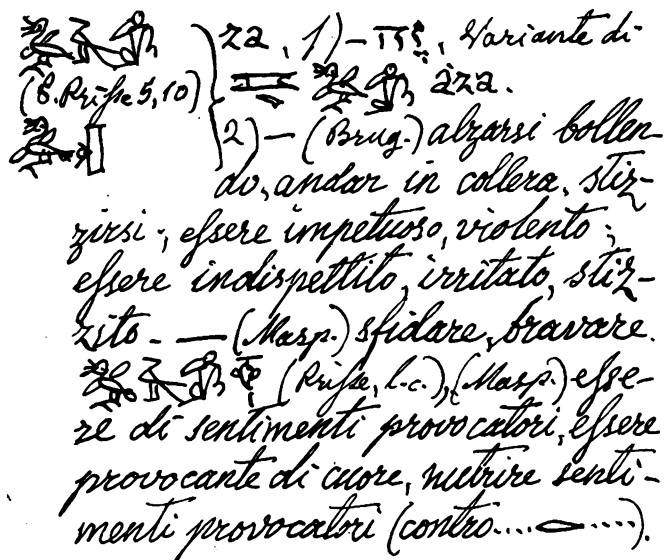 za, 1) — Variante di
(P. Prisse 5, 10) àza.
2) — (Brug.) alzarsi bollen-
do, andar in collera, stiz-
zirsi; essere impetuoso, violento;
essere indispettito, irritato, stiz-
zito. — (Masp.) sfidare, bravare.
(Prisse, l.c.), (Masp.) esse-
re di sentimenti provocatori, essere
provocante di cuore, nutrire senti-
menti provocatori (contro.... ....).